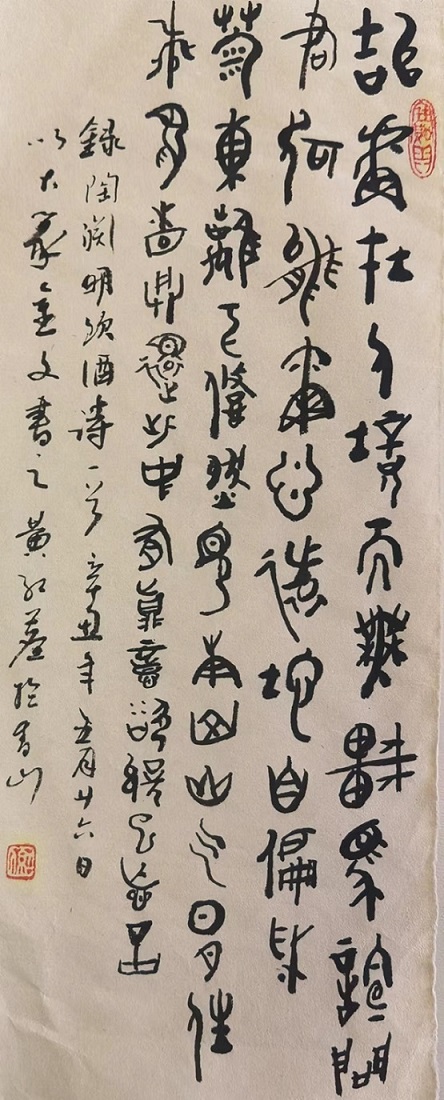 結廬在人境而無車馬喧問
君何能爾心遠地自偏采
菊東籬下悠然見南山山气日夕佳
飛鳥相與還此中有真意欲辨已忘言
録陶淵明飲酒詩一首辛丑年五月廿六日
以大篆金文書之黄紅於青山